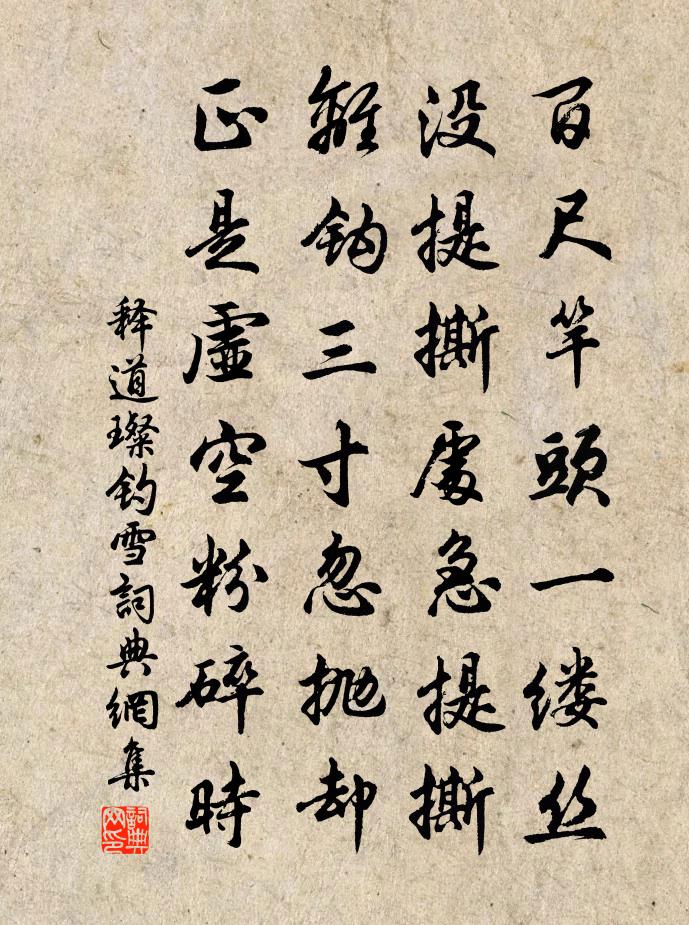 百尺竿頭一缕丝
没提撕處急提撕
離鈎三寸忽抛却
正是虛空粉碎時
释道璨钓雪詞典網集
詞典
网印